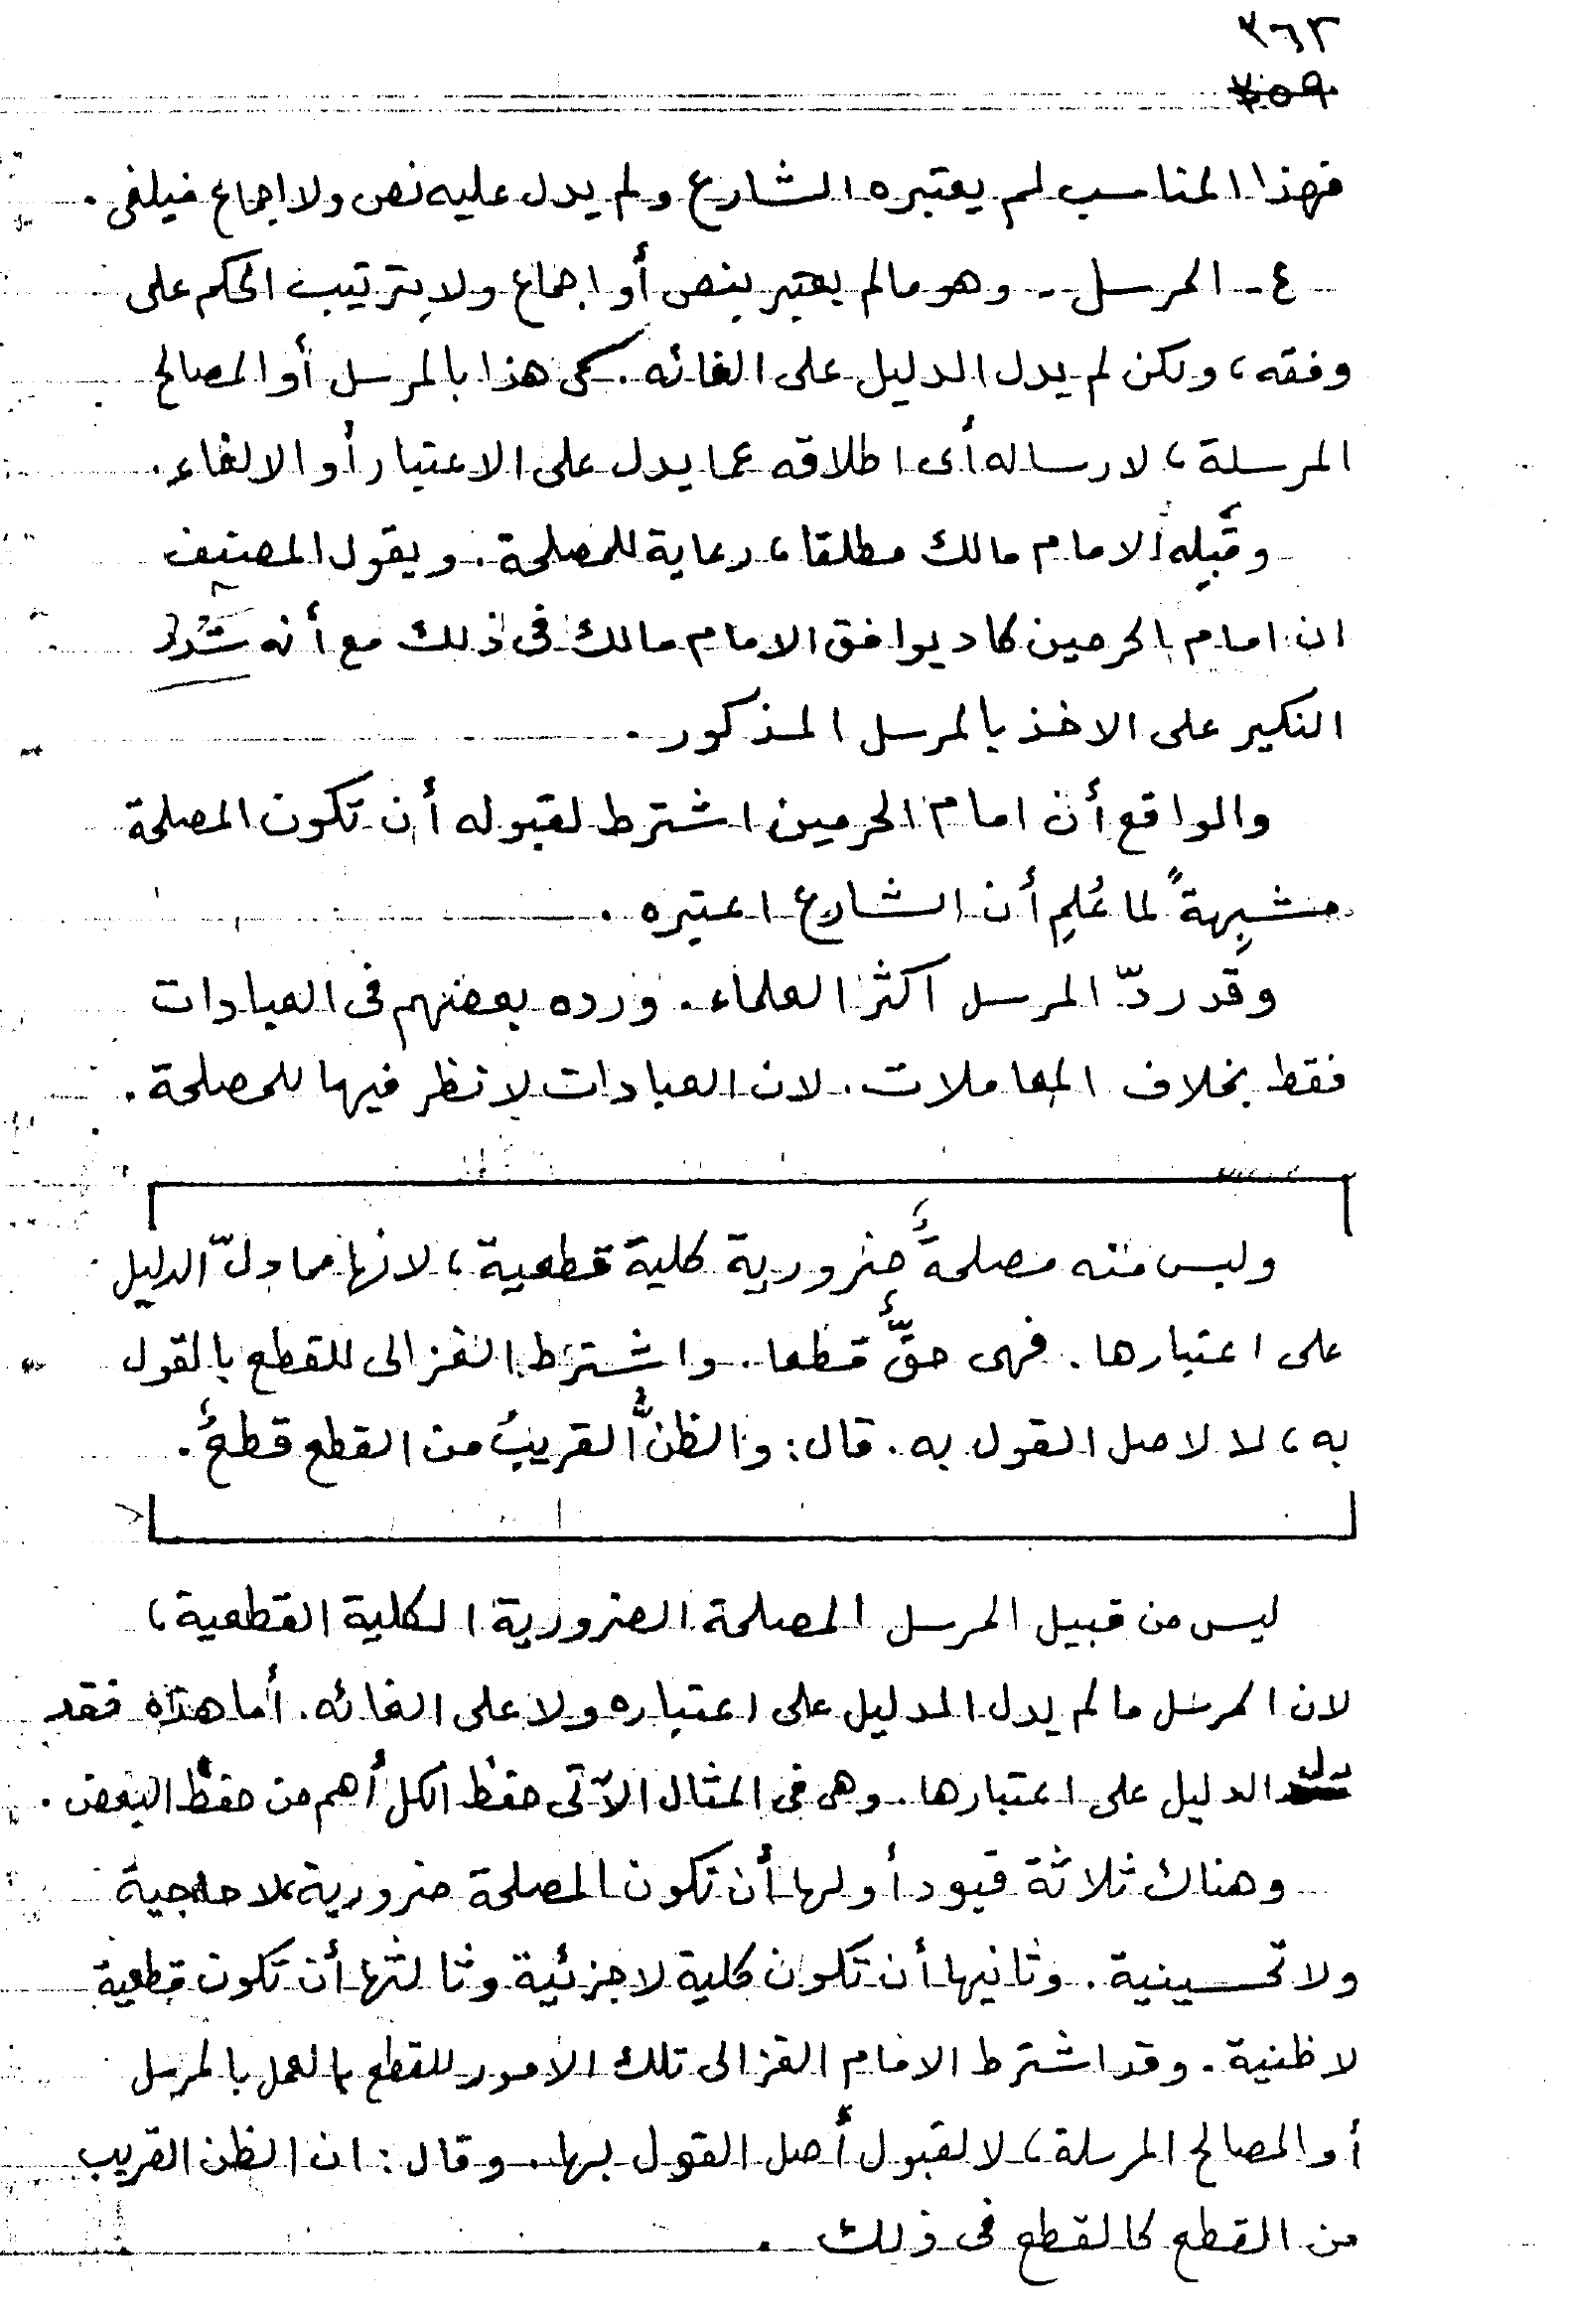 ٣٦٢
٣٥٩
فهذا المناسب لم يعتبره الشارع ولم يدل عليه نص ولا اجماع فيلغى .
٤ - المرسل - وهو ما لم يعتبر بنص أو اجماع ولا بترتيب الحكم على
وفقه ، ولكن لم يدل الدليل على الغائه . سمى هذا بالمرسل أو المصالح
المرسلة ، لارساله أى اطلاقه عما يدل على الاعتبار أو الالغاء .
وقَبِله الامام مالك مطلقا ، رعاية للمصلحة . ويقول المصنف
ان امام الحرمين كاد يوافق الامام مالك فى ذلك مع أنه شدد
النكير على الاخذ بالمرسل المذكور .
والواقع أن امام الحرمين اشترط لقبوله أن تكون المصلحة
مشبِهةً لما عُلِم أن الشارع اعتبره .
وقد ردّ المرسل أكثر العلماء . ورده بعضهم فى العبادات
فقط بخلاف المعاملات . لان العبادات لا نظر فيها للمصلحة .
وليس منه مصلحةٌ ضرورية كلية قطعية ، لانها مما دلّ الدليل
على اعتبارها . فهى حقٌّ قطعا . واشترط الغزالى للقطع بالقول
به ، لا لاصل القول به . قال : والظنُّ القريبُ من القطع قطعٌ .
ليس من قبيل المرسل المصلحة الضرورية الكلية القطعية ،
لان المرسل ما لم يدل الدليل على اعتباره ولا على الغائه . أما هذه فقد
دل الدليل على اعتبارها . وهى فى المثال الآتى حفظ الكل أهم من حفظ البعض .
وهناك ثلاثة قيود أولها أن تكون المصلحة ضرورية لا حاجية
ولا تحسينية . وثانيها أن تكون كلية لا جزئية وثالثها أن تكون قطعية
لا ظنية . وقد اشترط الامام الغزالى تلك الامور للقطع بالعمل بالمرسل
أو المصالح المرسلة ، لا لقبول أصل القول بها . وقال : ان الظن القريب
من القطع كالقطع فى ذلك .